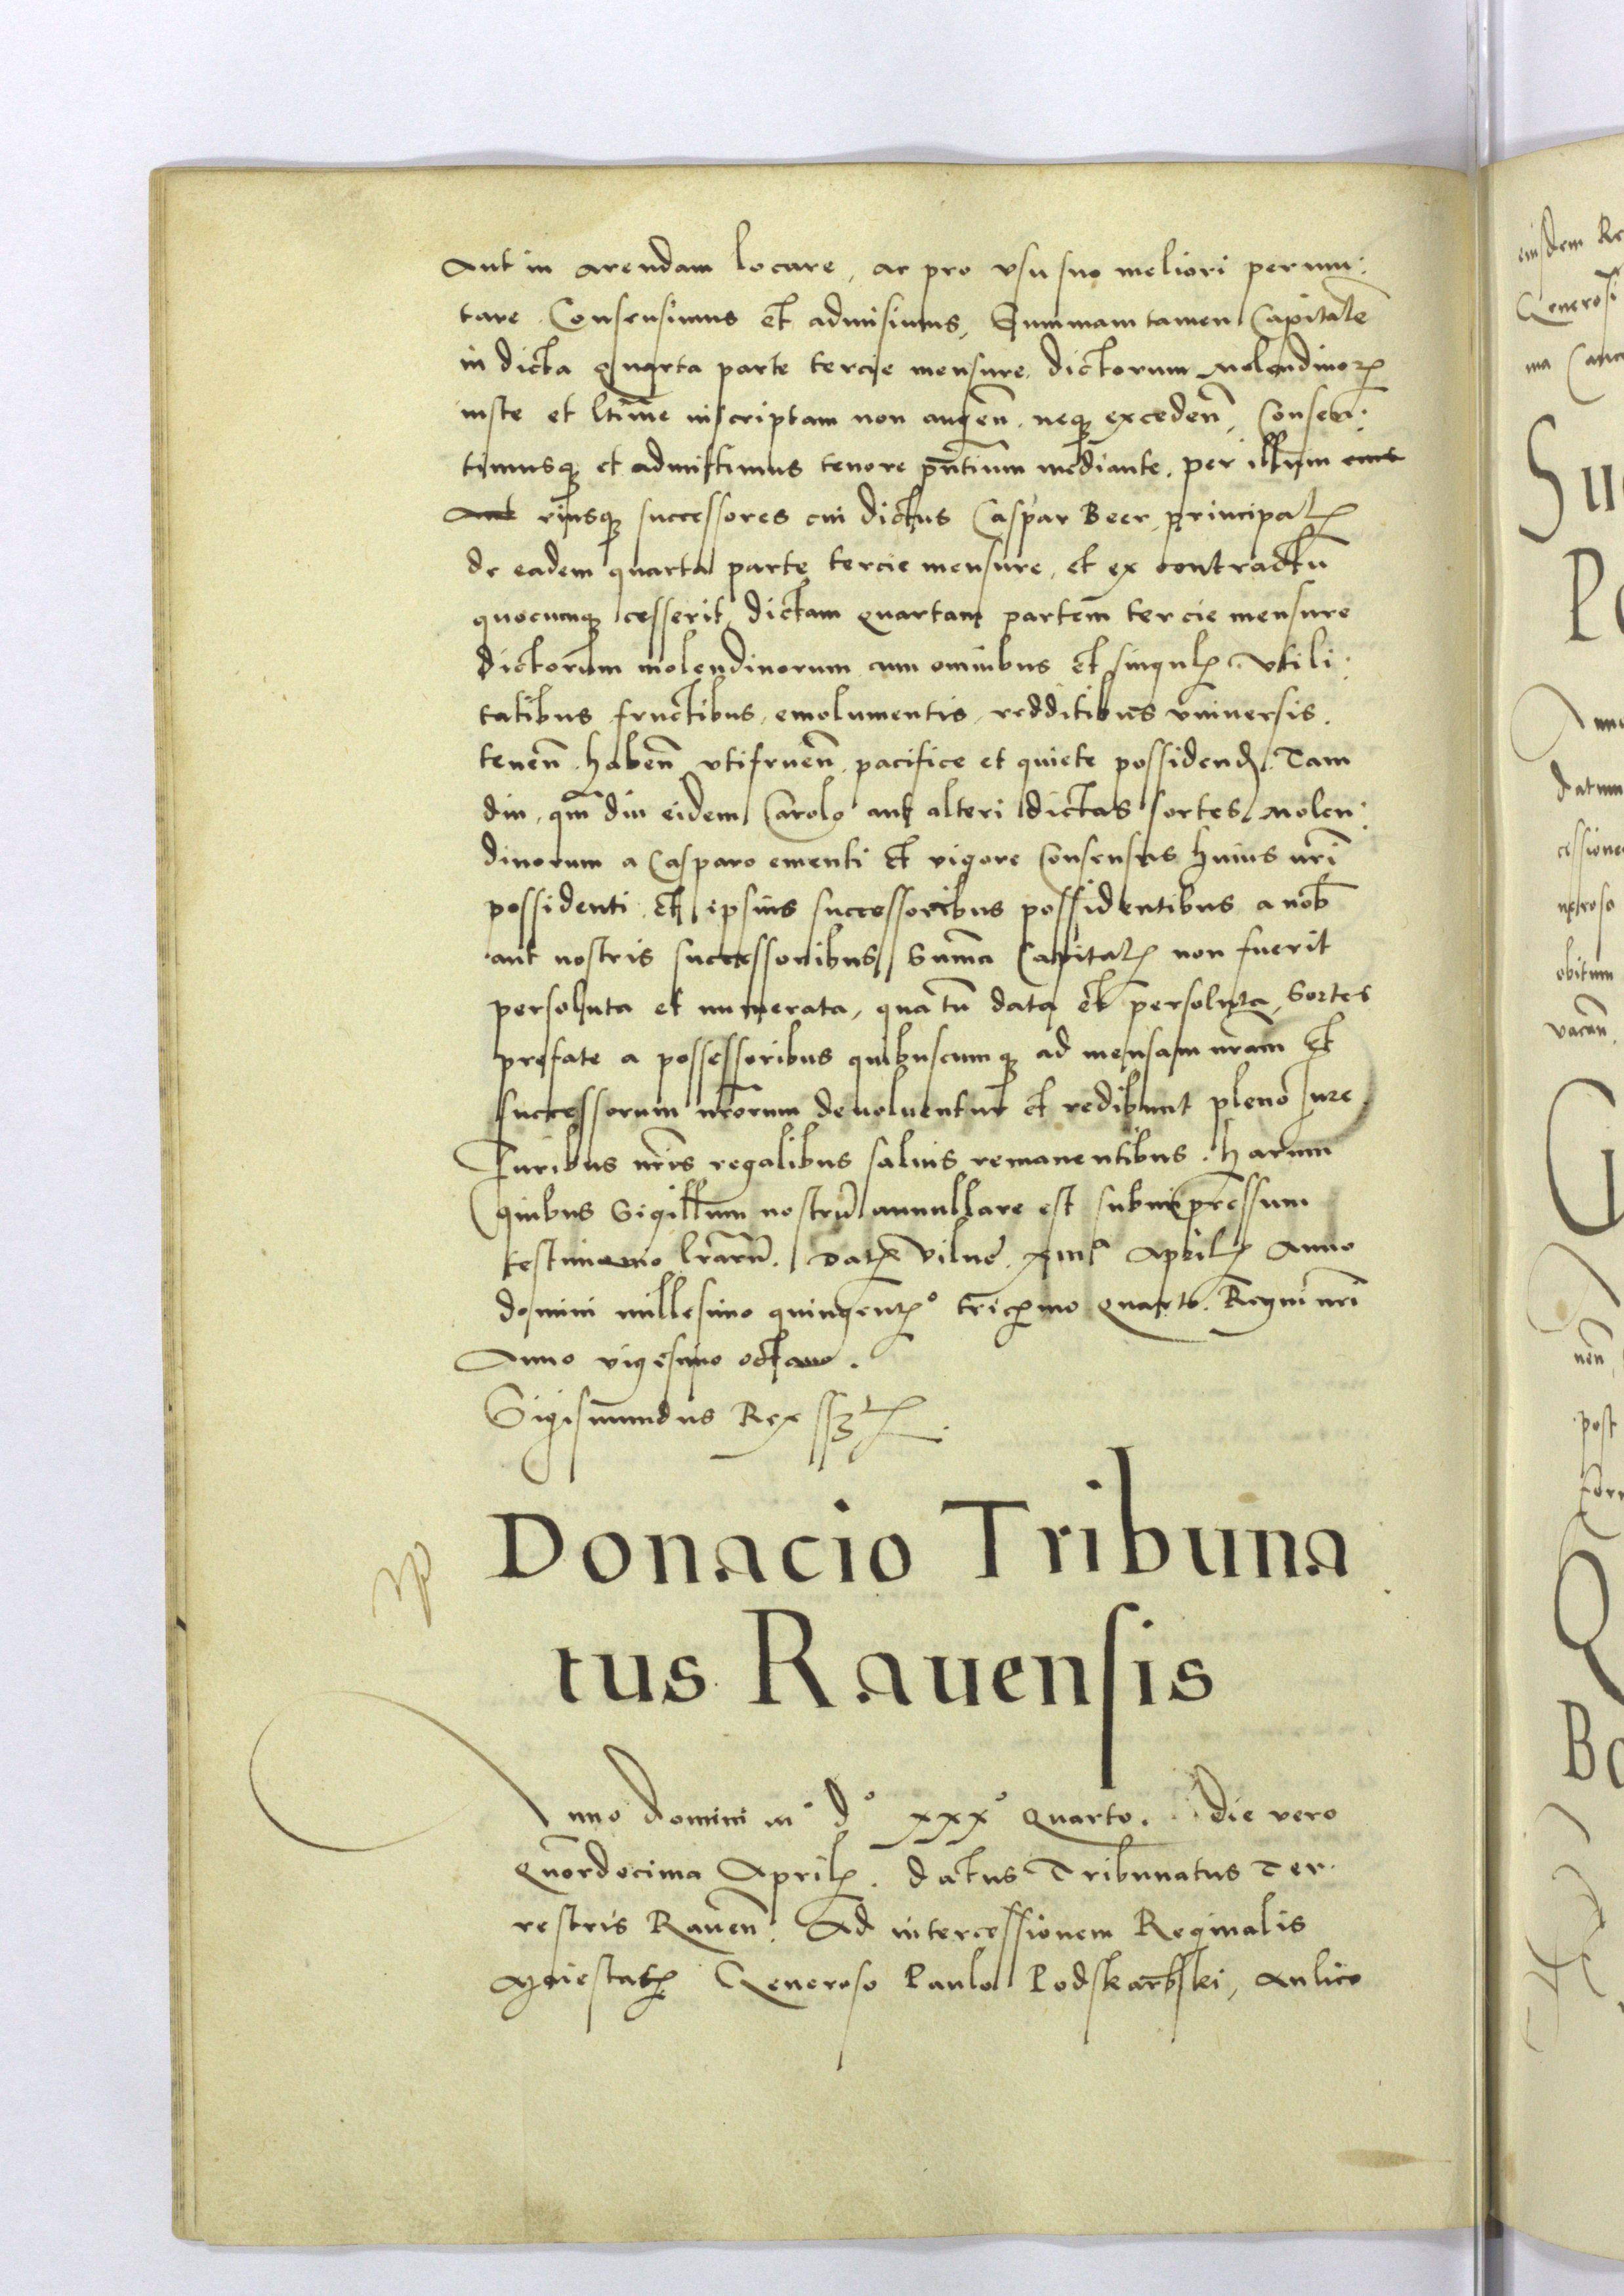 Aut in arendam locare, ac pro vsu suo meliori permu:
tare Consensimus et admisimus, Summam tamen Capitalē
in dicta quarta parte tercie mensure dictorum Molendinoꝝ
iuste et ltime inscriptam non augeñ. neqꝫ excedeñ, Consen:
timusqꝫ et admittimus tenore pñtium mediante. per illum eius
Aut eiusqꝫ successores cui dictus Caspar Beer principaꝉ
de eadem quarta parte tercie mensure, et ex contractu
quocumqꝫ cesserit, dictam quartam partem tercie mensure
dictorum molendinorum cum omnibus et singuꝉ vtili:
tatibus fructibus, emolumentis, redditibus vniuersis.
teneñ. habeñ vtifrueñ. pacifice et quiete possidenḍ. Tam
diu, qm̃ diu eidem Carolo aut alteri dictas sortes Molen:
dinorum a Casparo ementi et vigore Consensus huius nrī
possidenti. et ipsius successoribus possidentibus a nob̄
aut nostris successoribus Summa Capitaꝉ non fuerit
persoluta et numerata, qua tñ data et persoluta, Sortes
prefate a possessoribus quibuscumqꝫ ad mensam nrām Et
successorum nrōrum deuoluentur et redibunt pleno Iure.
Iuribus nrīs regalibus saluis remanentibus. Harum
quibus Sigillum nostrū annullare est subimpressum
testimonio lrārū. Datꝫ Vilne. xiiiᵃ Apriꝉ Anno
domini millesimo quingentꝫº tricꝫmo quarto. Regni nrī
Anno vigesimo octauo.
Sigismundus Rex sszt
Donacio Tribuna
tus Rauensis
Anno domini mº dº xxxº quarto. die vero
quordecima Apriꝉ. datus Tribunatus Ter
restris Raueñ. Ad intercessionem Reginalis
Maiestatꝫ Generoso Paulo Podskarbski, Aulico
eiusdem Re
Generosi
ma Canc
Su
Po
Anno
datum
cessione
neroso
obitum
vacañ
G
neñ
post
for
Q
Bo